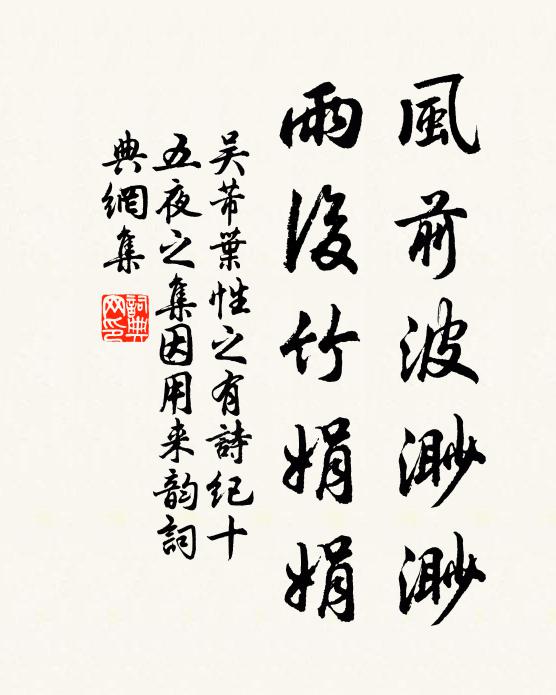 風前波渺渺
雨後竹娟娟
吴芾葉性之有詩紀十
五夜之集因用来韵詞
典網集
詞典
网印